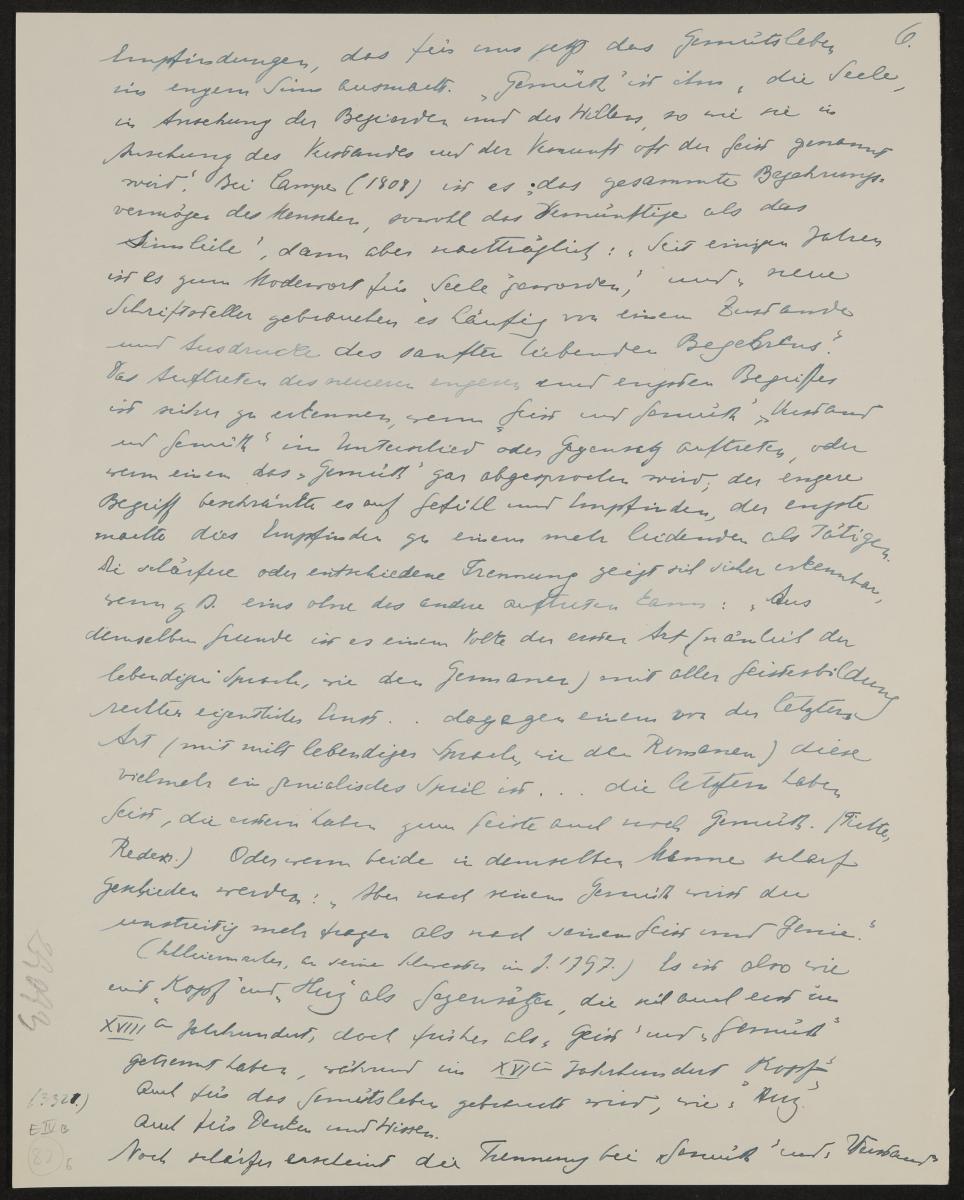 6.
Empfindungen, das für uns jetzt das Gemütsleben
im engern Sinn ausmacht. „Gemüth“ ist ihm „die Seele,
in Ansehung der Begierden und des Willens, so wie sie in
Ansehung des Verstandes und der Vernunft oft der Geist genannt
wird“. Bei Campe (1808) ist es „das gesammte Begehrungs-
vermögen des Menschen, sowohl das Vernünftige als das
Sinnliche“, dann aber nachträglich: „Seit einigen Jahren
ist es zum Modewort für Seele geworden,“ und „neue
Schriftsteller gebrauchen es häufig von einem Zustande
und Ausdrucke des sanften liebenden Begehrens“.
Das Auftreten des neueren engeren und engsten Begriffes
ist sicher zu erkennen, wenn „Geist und Gemüth“ „Verstand
und Gemüth“ im Unterschied oder Gegensatz auftreten, oder
wenn einen das „Gemüth“ gar abgesprochen wird; der engere
Begriff beschränkte es auf Gefühl und Empfinden, der engste
machte dies Empfinden zu einem mehr leidenden als Tätigen.
Die schärfere oder entschiedene Trennung zeigt sich sicher erkennbar,
wenn z B. eins ohne das andre auftreten kann: „Aus
demselben Grunde ist es einem Volke der ersten Art (nämlich der
lebendigen Sprach, wie den Germanen) mit aller Geistesbildung
rechter eigentlicher Ernst . . dagegen einem von der letztern
Art (mit nicht lebendiger Sprach, wie den Romanen) diese
vielmehr ein genialisches Spiel ist . . . die letztern haben
Geist, die erstern haben zum Geiste auch noch Gemüth. (Fichte,
Reden.) Oder wenn beide in demselben Manne scharf
geschieden werden: „Aber nach seinem Gemüth wirst du
unstreitig mehr fragen als nach seinem Geist und Genie.“
(Schleiermacher, an seine Schwester im J. 1797.) Es ist also wie
mit „Kopf“ und „Herz“ als Gegensätzen, die sich auch erst im
XVIII n Jahrhundert, doch früher als „Geist“ und „Gemüth“
getrennt haben, während im XVI n Jahrhundert „Kopf“
auch für das Gemütsleben gebraucht wird, wie „Herz“
auch für Denken und Wissen.
Noch schärfer erscheint die Trennung bei „Gemüth“ und „Verstand“
(3321.)
E IV B
82 6